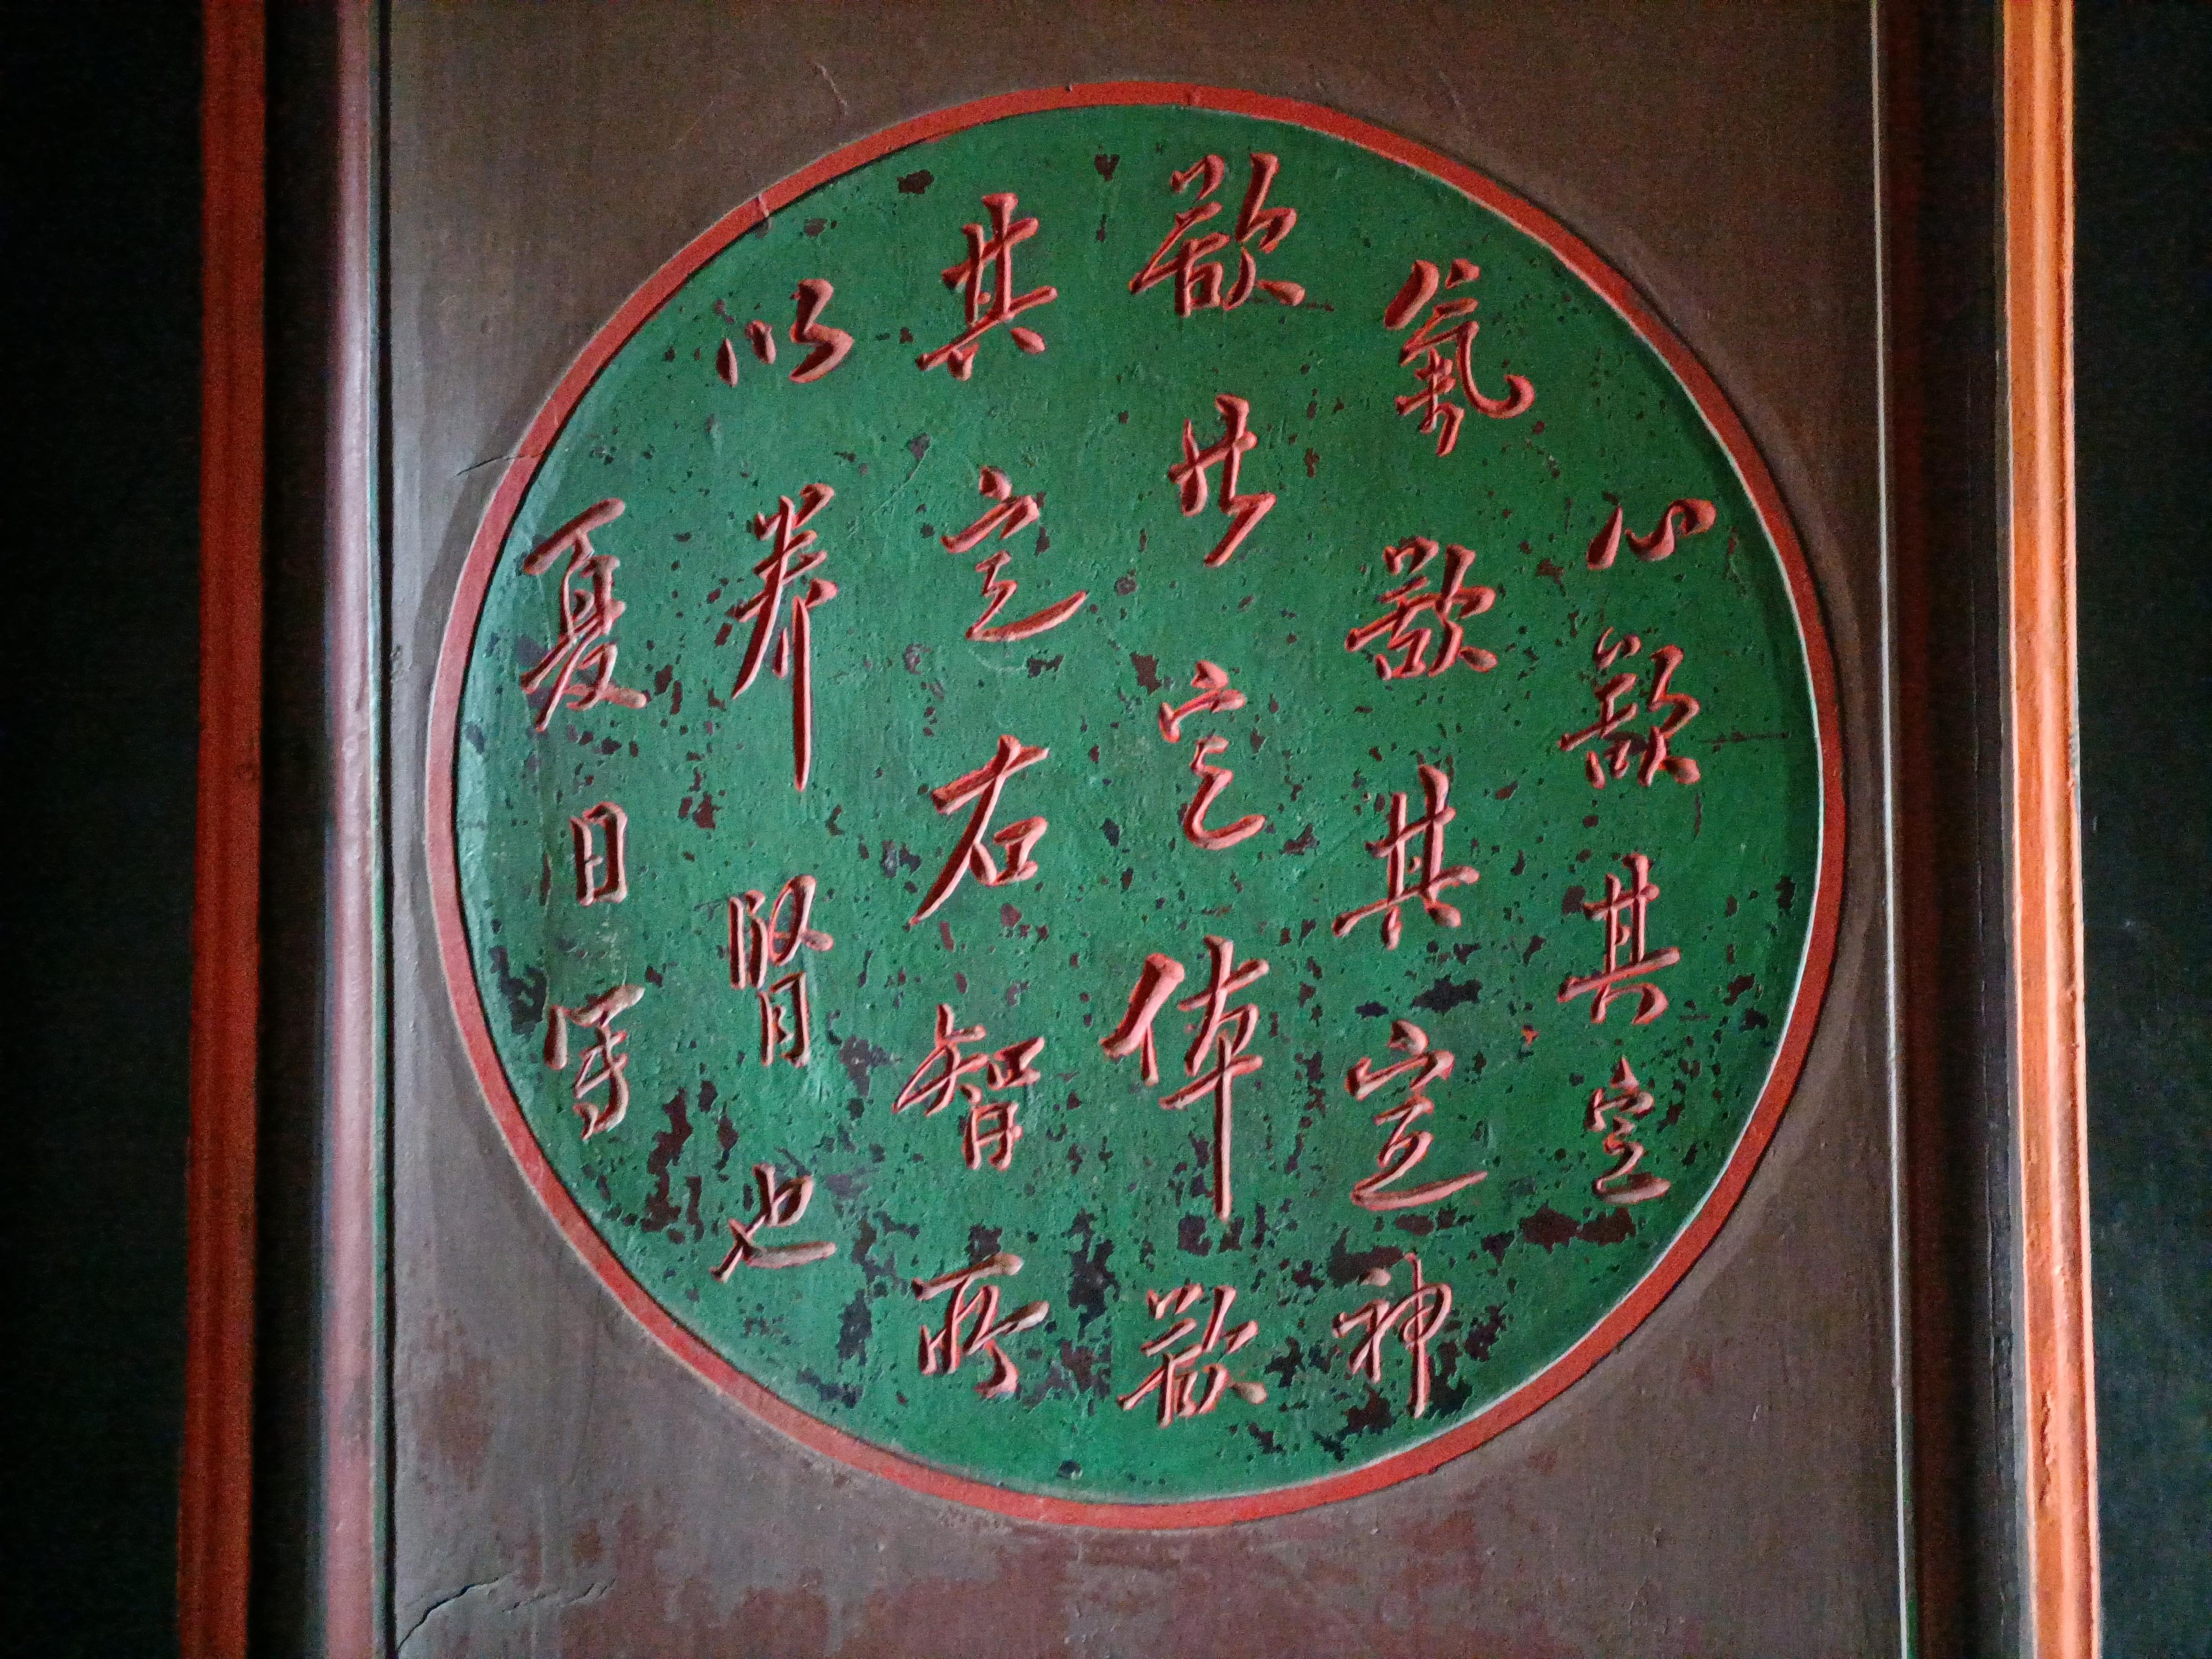 心欲其定
氣欲其定神
欲其定体欲
其定右智所
以养腎也
夏日写